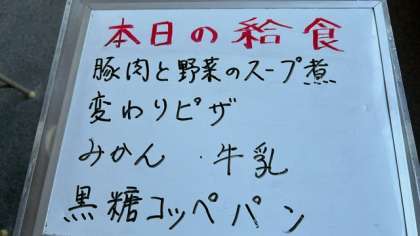 本日の給食
豚肉と野菜のスープ煮
変わりピザ
みかん ・牛乳
黒糖コッペパン